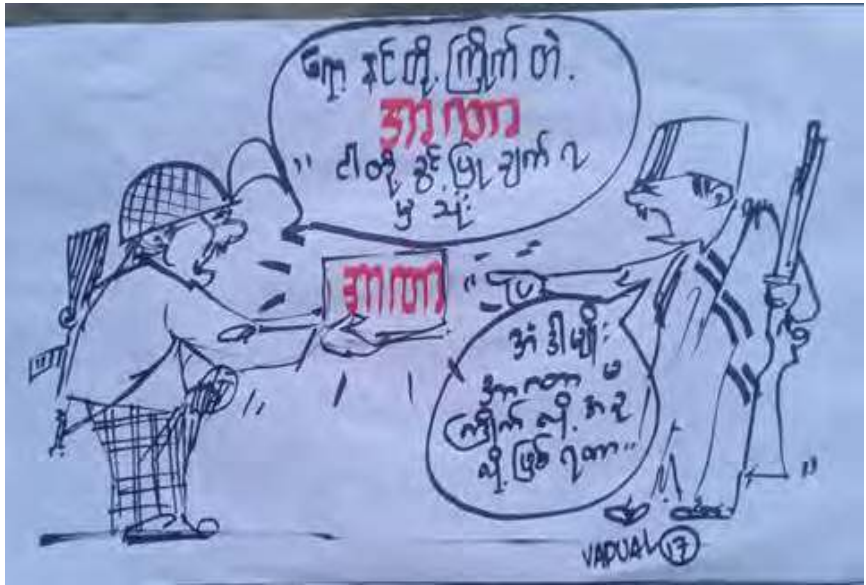 ရော့ နင်တို့ ကြိုက်တဲ့
အာဏာ
ငါတို့ ခွင့်ပြုချက်ရ
မှ သုံး
အာဏာ
အံ ဒါမျိုး
အာဏာ မ
ကြိုက်လို့ အခု
လို ဖြစ်ရတာ
VADUAL 17